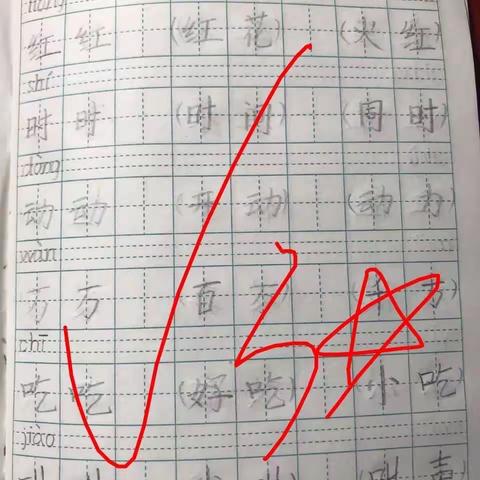 hóng
红 红 (红 花) (火 红)
shí
时 时 (时 间) (同 时)
dòng
动 动 (开 动) (动 力)
wàn
万 万 (百 万) (千 万)
chī
吃 吃 (好 吃) (小 吃)
jiào